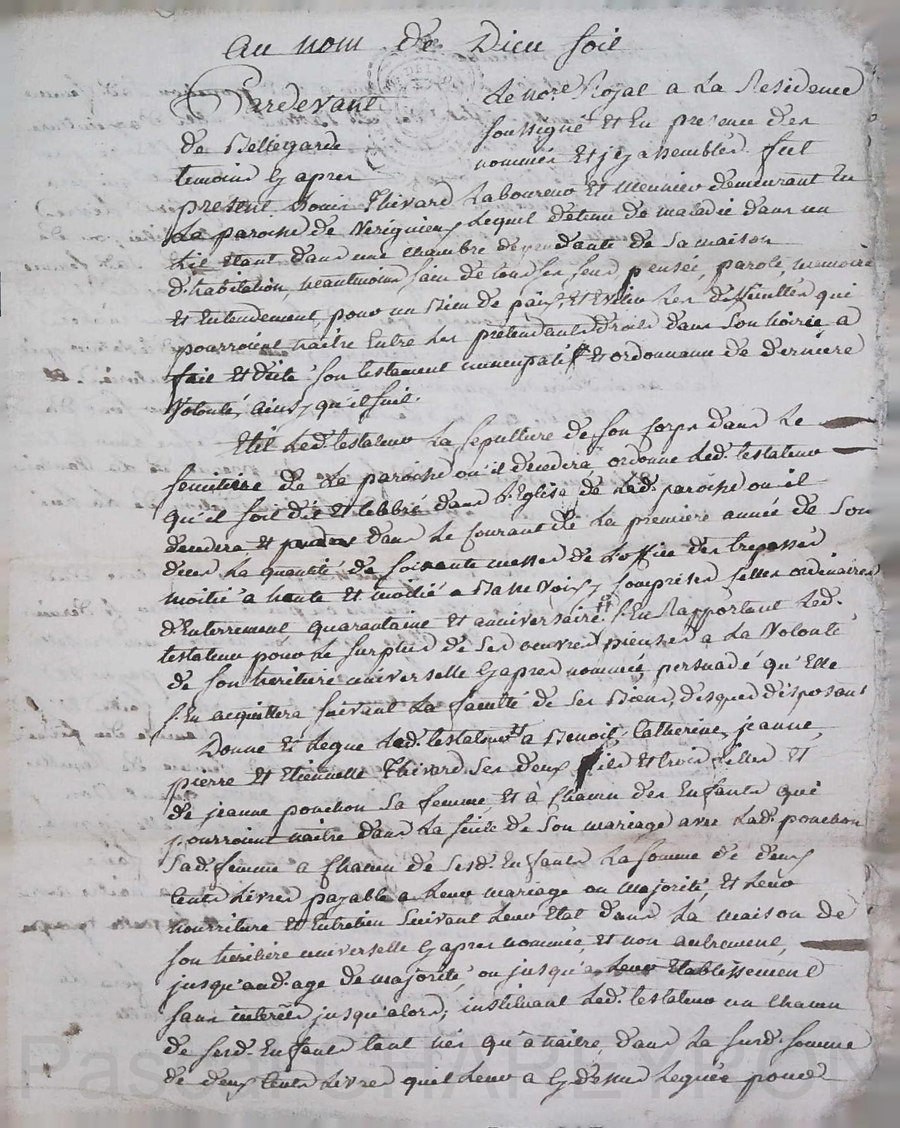 Au nom de Dieu soit
Pardevant Le no.re Royal a La Residence
de Bellegarde soussigné et En presence des
temoins Cy apres nommés et icy assemblés fut
present Louis Thivard Laboureur et Meunier demeurant En
La paroisse de Verignieu Lequel détenu de maladie dans un
Lit Etant dans une Chambre dépendante de Sa maison
d'habitation, neautmoins sain de tous ses sens, pensée, parole, memoire
Et Entendement, pour un Bien de paix, Et Eviter Les difficultés qui
pourroient naître Entre Les prétendants droits dans Son hoirie, a
fait Et dicté Son testament nuncupatif Et ordonnance de derniere
Volonté, ainsy qu'il suit.
Elit Led. testateur La Sepulture de Son Corps dans Le
Cemitiere de La paroisse ou il decedera ordonne Led. testateur
qu'il soit dit Et Celebré dans L'Eglise de Lad. paroisse ou il
decedera, Et dans Le Courant de La premiere année de Son
deces La quantité de soixante messes de L'office des trepassés
moitié a haute Et moitié a Basse Voix, Comprises Celles ordinaires
d'Enterrement quarantaine Et anniversaire, S'En Rapportant Led.
testateur pour Le Surplus de Ses oeuvres pieuses a La Volonté
de Son heritiere universelle Cy apres nommée, persuadé qu'Elle
S'En acquittera suivant La faculté de Ses Biens, desquels disposant
Donne Et Legue Led. testateur a Benoit, Catherine, jeanne,
pierre Et Etiennette Thivard Ses deux fils Et trois filles Et
de jeanne ponchon Sa femme Et à Chacun des Enfants qui
pourroient naître dans La suite de Son mariage avec Lad. ponchon
Sad. femme a Chacun de Sesd. Enfants La somme de deux
Cents Livres payable a Leur mariage ou Majorité, Et Leur
nourriture et Entretien Suivant Leur Etat dans La maison de
Son héritiere universelle Cy apres nommée, Et non autrement,
jusqu'aud. age de majorité, ou jusqu'a Leur Etablissement
sans interêts jusqu'alors; instituant Led. testateur un Chacun
de Sesd. Enfants tant nés qu'à naître, dans La susd. somme
de deux Cents Livres quil Leur a Cy dessus Leguée pour